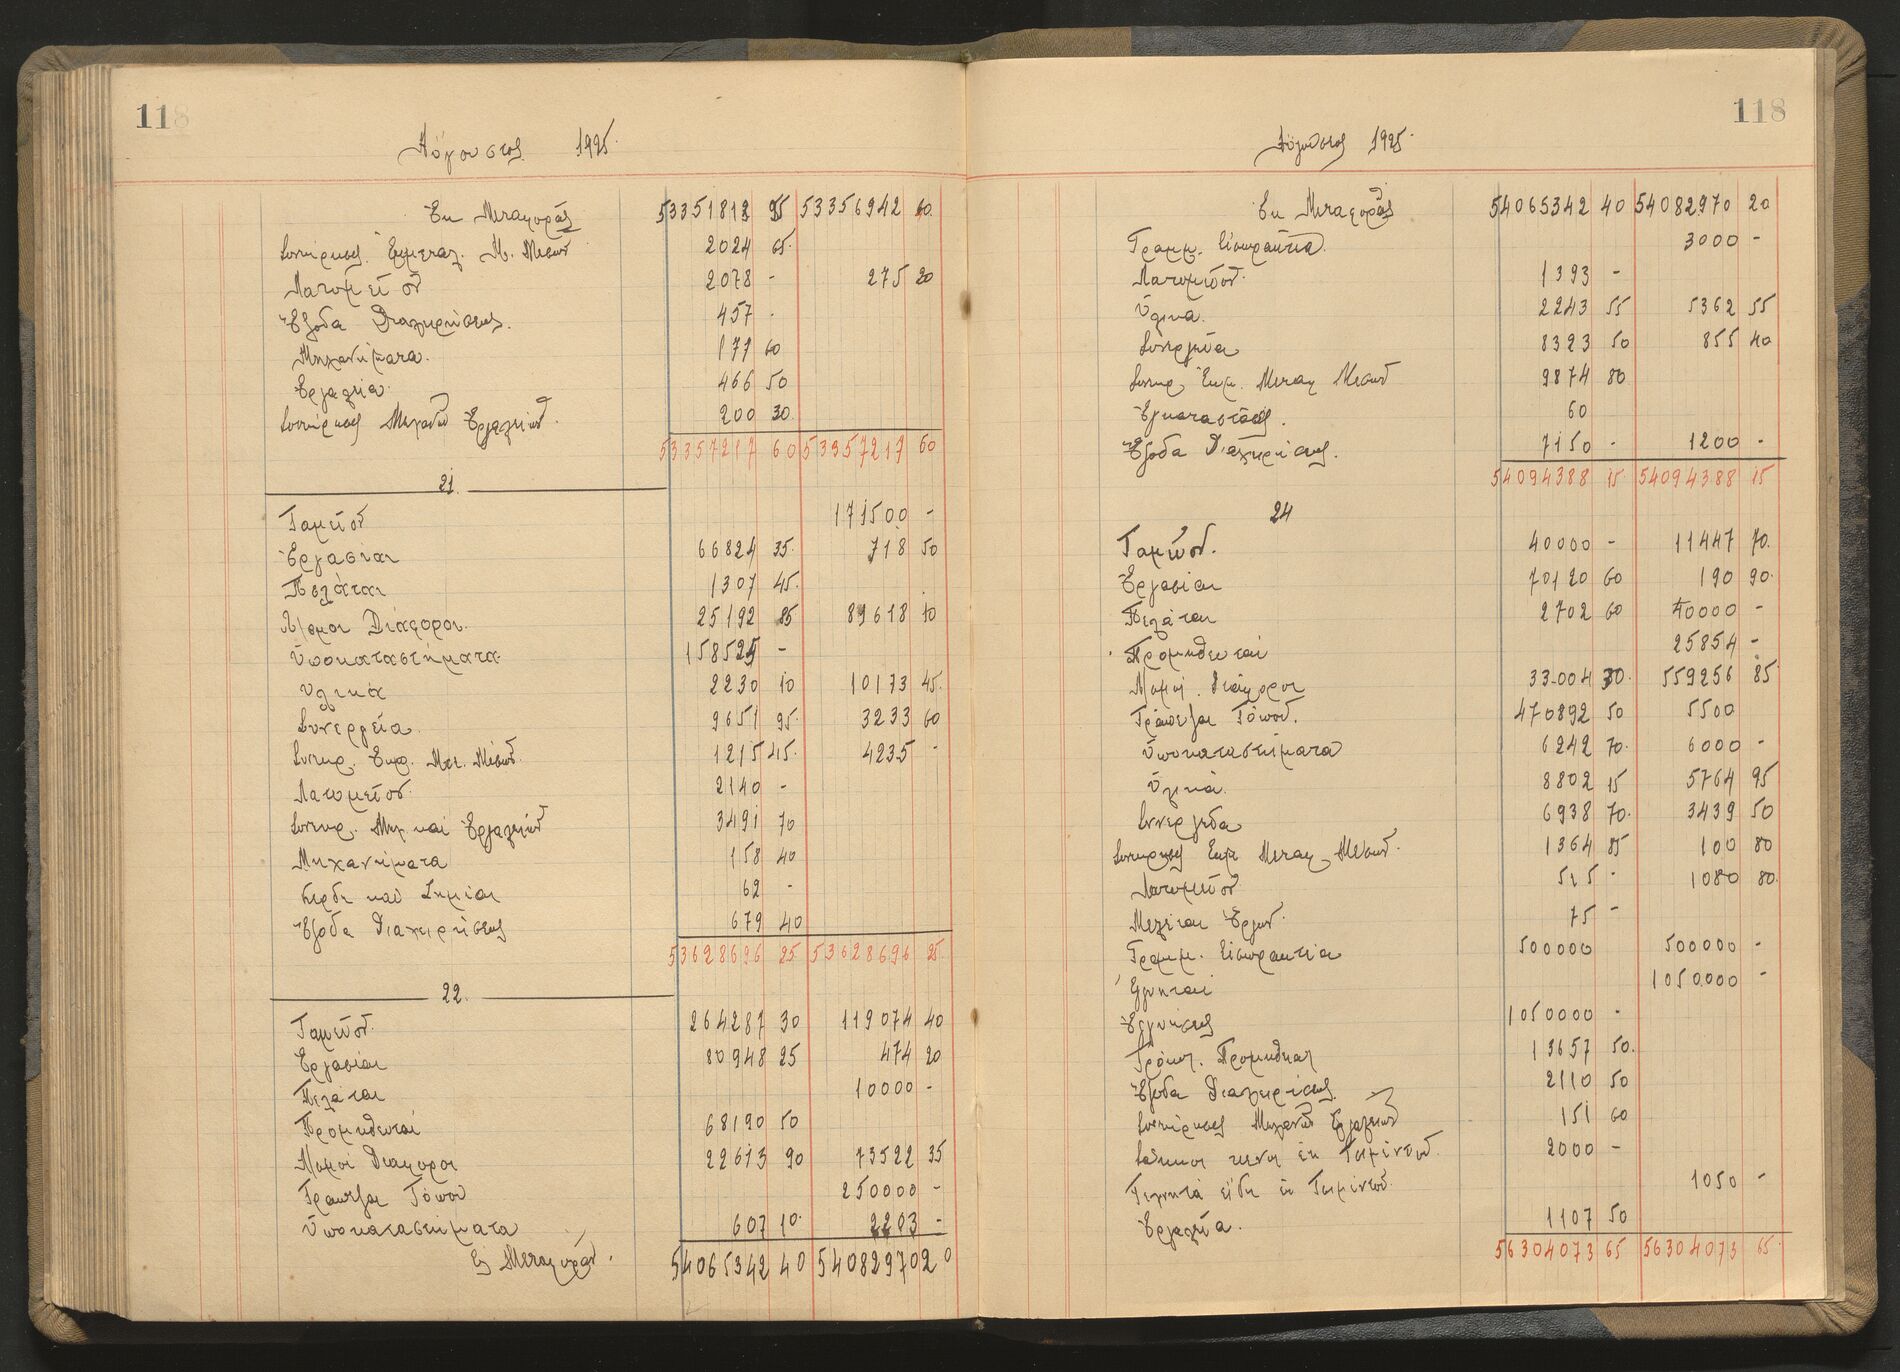 118
Αύγουστος 1925.
Εκ Μεταφοράς 53351812 95 53356942 40
Συντήρησις Εγκαταλ. Μ. Μέσων 2024 65
Λατομείον 2078 - 275 20
Έξοδα Διαχειρίσεως. 457 -
Μηχανήματα. 177 60
Εργαλεία. 466 50
Συντήρησις Μηχανών Εργαλείων 200 30
53357217 60 53357217 60
21.
Ταμείον 171500 -
Εργασίαι 66824 35 718 50
Πελάται 1307 45
Λ/σμοι Διάφοροι. 25192 85 89618 10
Υποκαταστήματα 158525 -
Υλικά 2230 10 10173 45
Συνεργεία 9651 95 3233 60
Συντηρ. Εγκ. Μετ. Μέσων. 1215 45 4235 -
Λατομείον. 2140 -
Συντηρ. Μηχ. και Εργαλείων 3491 70
Μηχανήματα 158 40
Κέρδη και Ζημίαι 62 -
Έξοδα Διαχειρίσεως 679 40
53628696 25 53628696 25
22.
Ταμείον. 264287 30 119074 40
Εργασίαι 80948 25 474 20
Πελάται 10000 -
Προμηθευταί 68190 50
Λ/σμοί Διάφοροι 22613 90 73522 35
Τράπεζαι Τόπου 250000 -
Υποκαταστήματα 607 10 2203 -
Εις Μεταφοράν. 54065342 40 54082970 20
118
Αύγουστος 1925.
Εκ Μεταφοράς 54065342 40 54082970 20
Γραμμ. Εισπρακτέα. 3000 -
Λατομείον. 1393 -
Υλικά. 2243 55 5362 55
Συνεργεία 8323 50 855 40
Συντηρ. Εγκ. Μεταφ Μέσων 9874 80
Εγκαταστάσεις. 60
Έξοδα Διαχειρίσεως. 7150 - 1200 -
54094388 15 54094388 15
24
Ταμείον. 40000 - 11447 70
Εργασίαι 70120 60 190 90
Πελάται 2702 60 40000 -
Προμηθευταί 25854 -
Λ/σμοί. Διάφοροι 33004 30 559256 85
Τράπεζαι Τόπου. 470892 50 5500
Υποκαταστήματα 6242 70 6000 -
Υλικά. 8802 15 5764 95
Συνεργεία 6938 70 3439 50
Συντήρησις Εγκ Μεταφ Μέσων. 1364 85 100 80
Λατομείον 515 - 1080 80
Μελέται Έργων. 75 -
Γραμμ. Εισπρακτέα 500000 500000 -
Εγγυηταί 1050000 -
Εγγυήσεις 1050000 -
Προμηθείας 13657 50
Έξοδα Διαχειρίσεως. 2110 50
Συντήρησις Μηχανών Εργαλείων 151 60
εκ Τσιμέντου. 2000 -
Τεχνητά είδη εκ Τσιμέντου. 1050 -
Εργαλεία. 1107 50
56304073 65 56304073 65